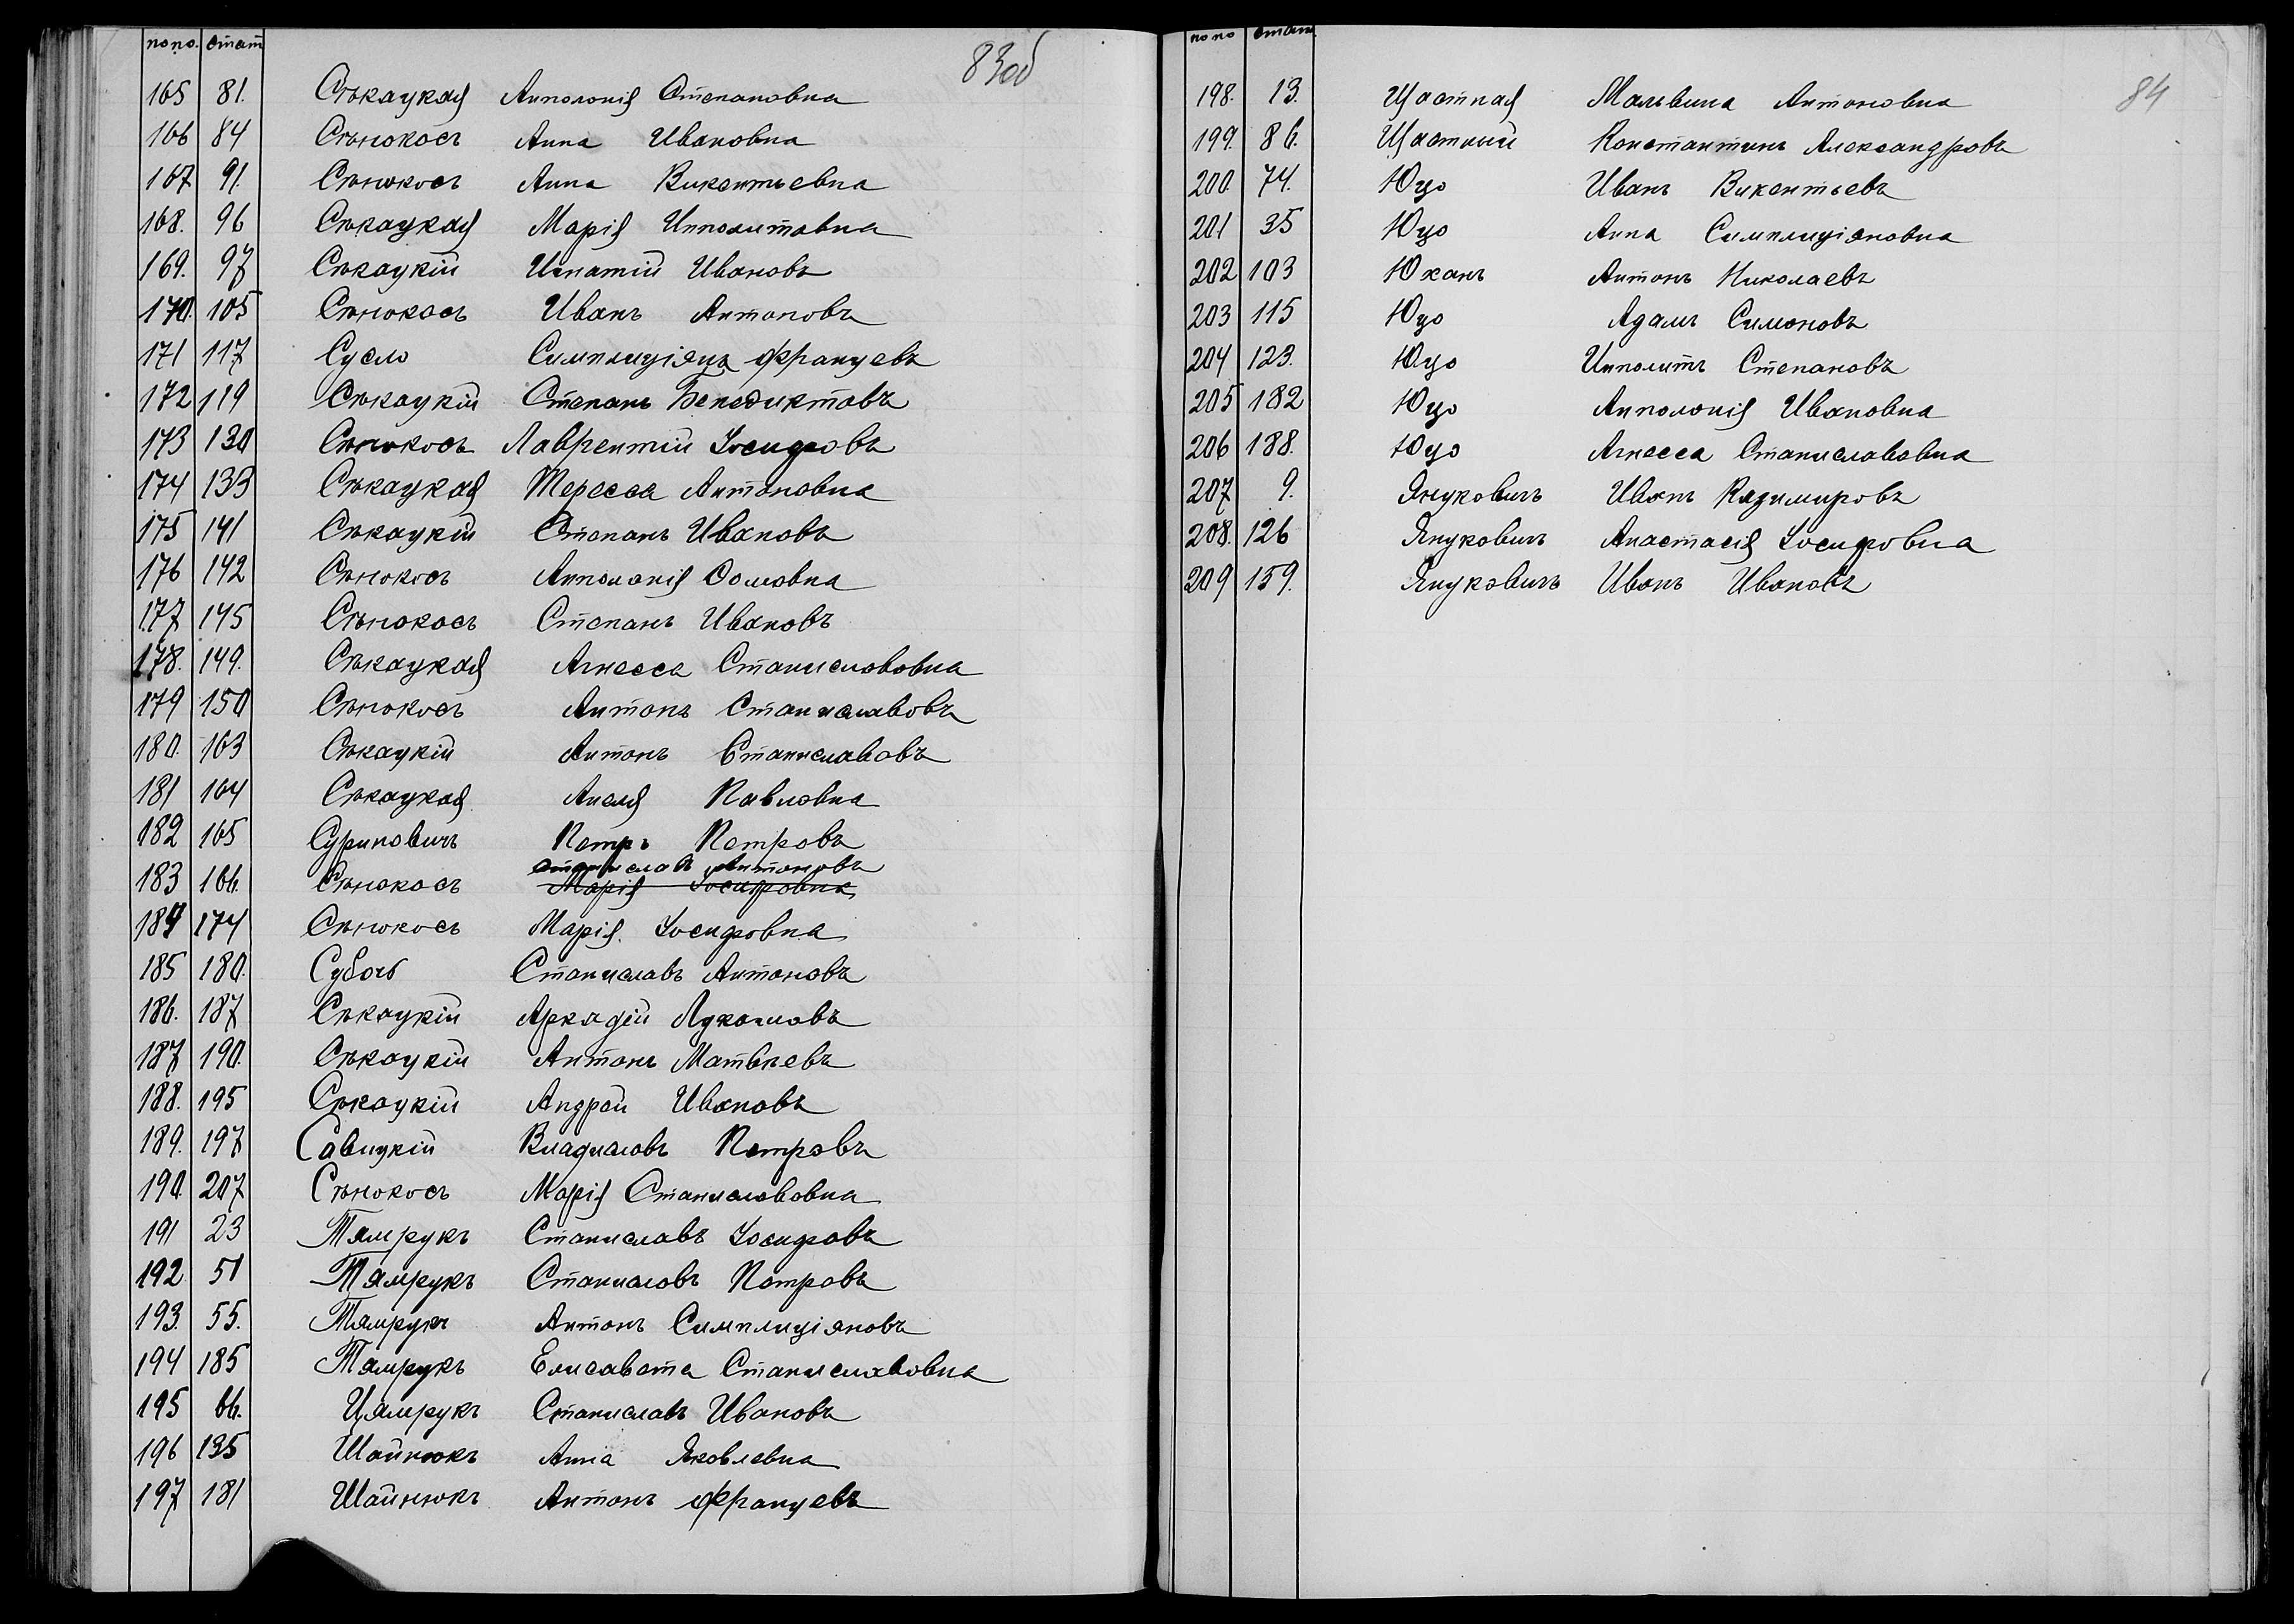 по по. стат
83об
165 81. Сѣкацкая Апполонія Степановна
166 84 Сѣнокосъ Анна Ивановна
167 91. Сѣнокосъ Анна Викентьевна
168. 96 Сѣкацкая Марія Ипполитовна
169. 97 Сѣкацкій Игнатій Ивановъ
170. 105 Сѣнокосъ Иванъ Антоновъ
171 117 Сусло Симплиціянъ Францевъ
172 119 Сѣкацкій Степанъ Бенедиктовъ
173 130 Сѣнокосъ Лаврентій Іосифовъ
174 133 Сѣкацкая Тересса Антоновна
175 141 Сѣкацкій Степанъ Ивановъ
176 142 Сѣнокосъ Апполонія Ѳомовна
177 145 Сѣнокосъ Степанъ Ивановъ
178. 149. Сѣкацкая Агнесса Станиславовна
179 150 Сѣнокосъ Антонъ Станиславовъ
180. 163 Сѣкацкій Антонъ Станиславовъ
181 164 Сѣкацкая Анеля Павловна
182 165 Суриновичъ Петръ Петровъ
Станиславъ Антоновъ
183 166. Сѣнокосъ Марія Іосифовна
184 174 Сѣнокосъ Марія Іосифовна
185 180. Субочъ Станиславъ Антоновъ
186. 187 Сѣкацкій Аркадій Лукашовъ
187 190. Сѣкацкій Антонъ Матвѣевъ
188. 195 Сѣкацкій Андрей Ивановъ
189. 197 Савицкій Владиславъ Петровъ
190. 207 Сѣнокосъ Марія Станиславовна
191 23 Тямрукъ Станиславъ Іосифовъ
192 51 Тямрукъ Станиславъ Петровъ
193. 55. Тямрукъ Антонъ Симплиціяновъ
194 185 Тямрукъ Елисавета Станиславовна
195 66. Цямрукъ Станиславъ Ивановъ
196 135 Шайнюкъ Анна Яковлевна
197 181 Шайнюкъ Антонъ Францевъ
по по стат.
84
198. 13. Щастная Мальвина Антоновна
199. 86. Щастный Константинъ Александровъ
200. 74. Юцо Иванъ Викентьевъ
201 35 Юцо Анна Симплиціяновна
202 103 Юханъ Антонъ Николаевъ
203 115 Юцо Адамъ Симоновъ
204 123. Юцо Ипполитъ Степановъ
205 182 Юцо Апполонія Ивановна
206 188. Юцо Агнесса Станиславовна
207 9. Януковичъ Иванъ Казимировъ
208. 126 Януковичъ Анастасія Іосифовна
209 159. Януковичъ Иванъ Ивановъ